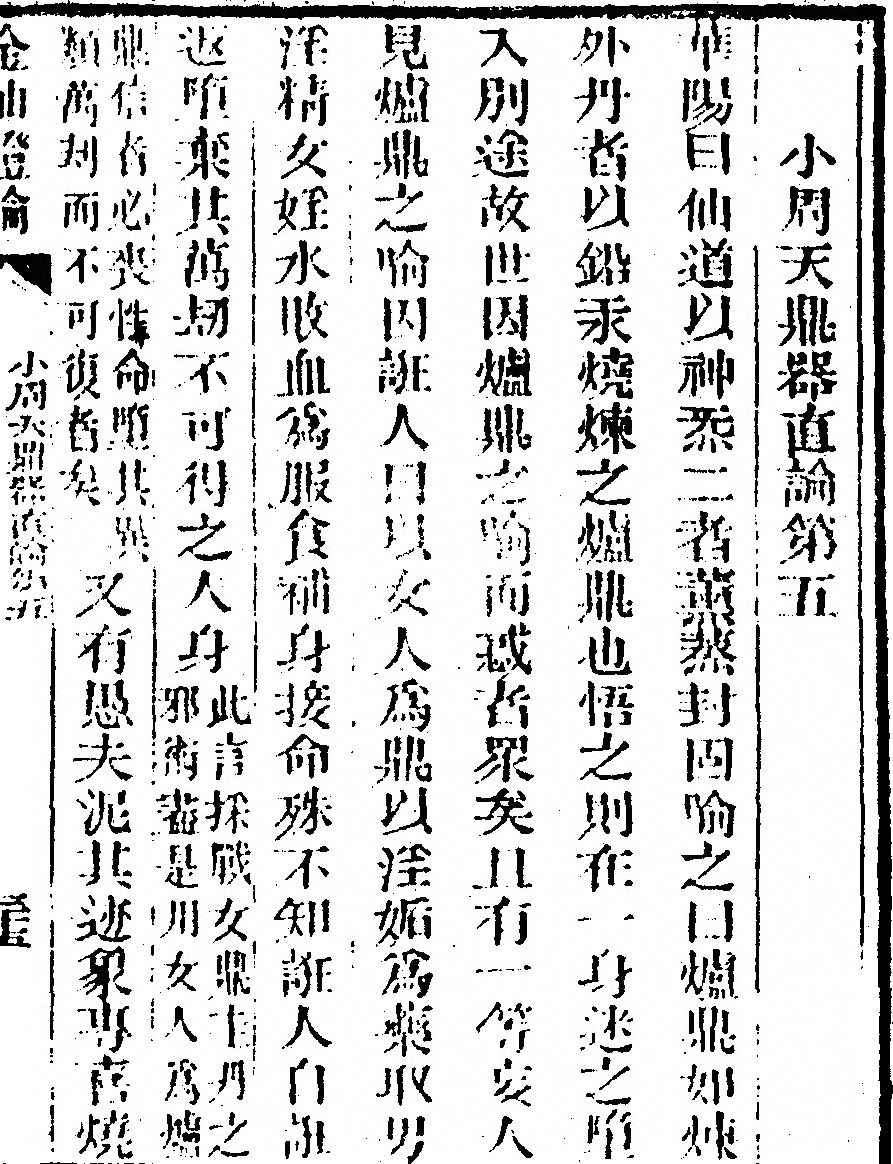 小周天鼎器直論第五
華陽曰仙道以神炁二者薰蒸封固喻之曰爐鼎如煉
外丹者以鉛汞燒煉之爐鼎也悟之則在一身迷之墮
入別途故世因爐鼎之喻而惑者眾矣且有一等妄人
見爐鼎之喻因誑人曰以女人為鼎以淫媾為藥取男
淫精女婬水敗血為服食補身接命殊不知誑人自誑
返墮棄其萬劫不可得之人身
此言採戰女鼎主丹之
邪術盡是用女人為爐
鼎信者必喪性命墮其異
類萬刦而不可復者矣
又有愚夫泥其迹象專喜燒
金仙證論
小周天鼎器直論第五